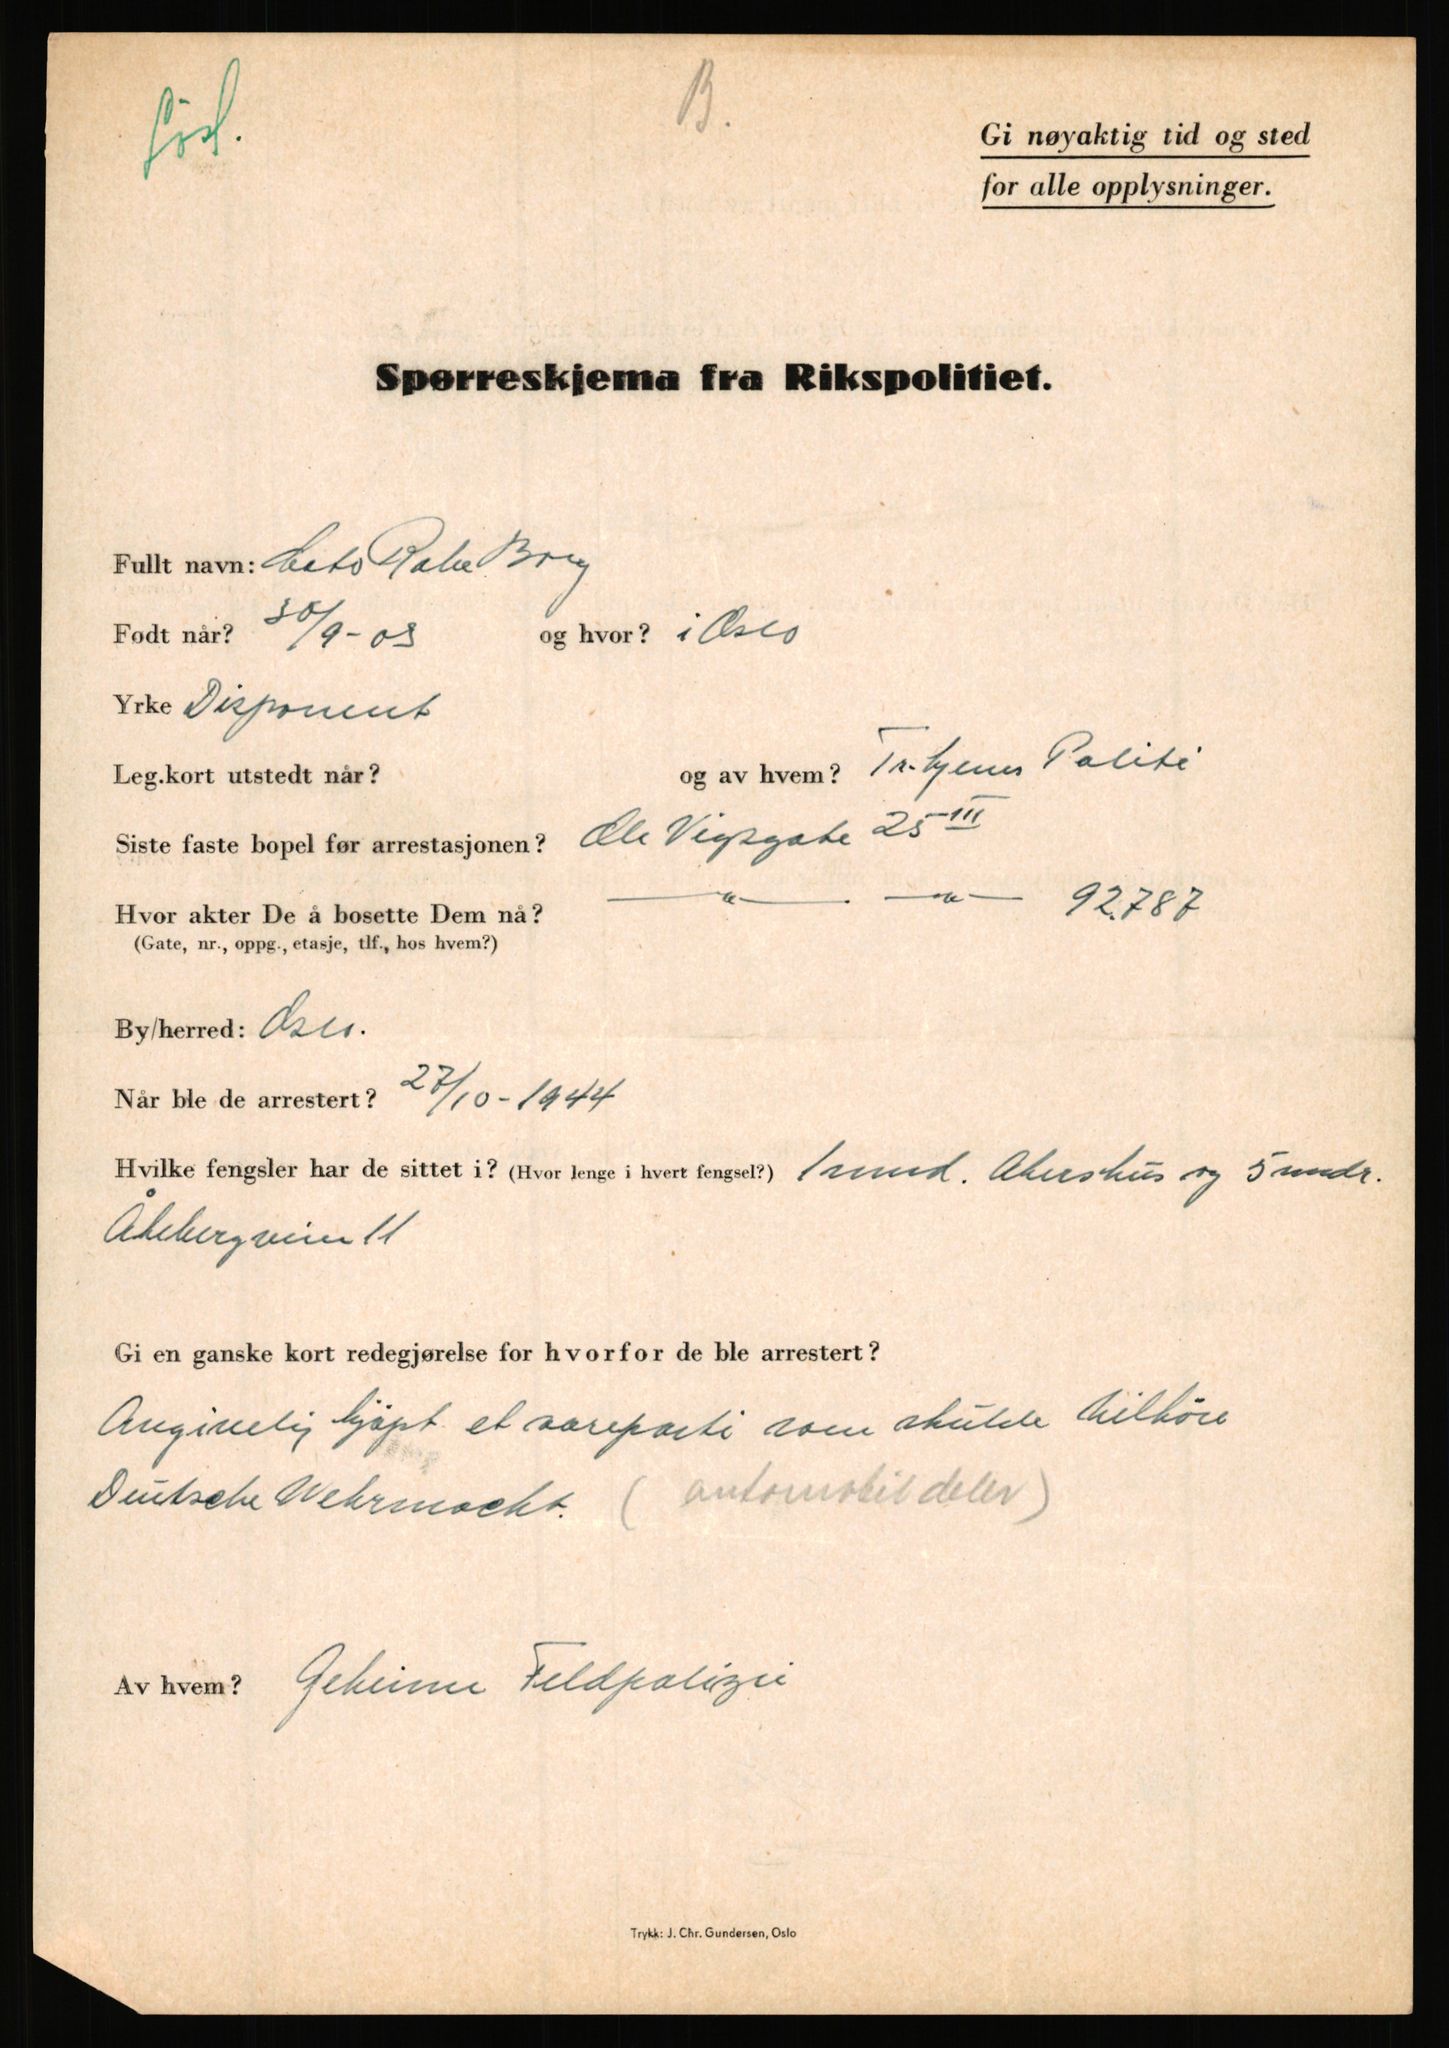 B.
Gi nøyaktig tid og sted
for alle opplysninger.
Spørreskjema fra Rikspolitiet.
Fullt navn: Cato Rabe Borg
Født når? 30/9-03 og hvor? i Oslo
Yrke Disponent
Leg.kort utstedt når? og av hvem? Tr.hjems Politi
Siste faste bopel før arrestasjonen? Ole Vigsgate 25 III
Hvor akter De å bosette Dem nå? —"— —"— 92.787
(Gate, nr., oppg., etasje, tlf., hos hvem?)
By/herred: Oslo.
Når ble de arrestert? 27/10-1944
Hvilke fengsler har de sittet i? (Hvor lenge i hvert fengsel?) 1 mnd. Akershus og 5 mndr.
Åkebergveien 11
Gi en ganske kort redegjørelse for hvorfor de ble arrestert?
Angivelig kjøpt et vareparti som skulde tilhöre
Deutsche Wehrmacht. (automobildeler)
Av hvem? Geheime Feldpolizei
Trykk: J. Chr. Gundersen, Oslo